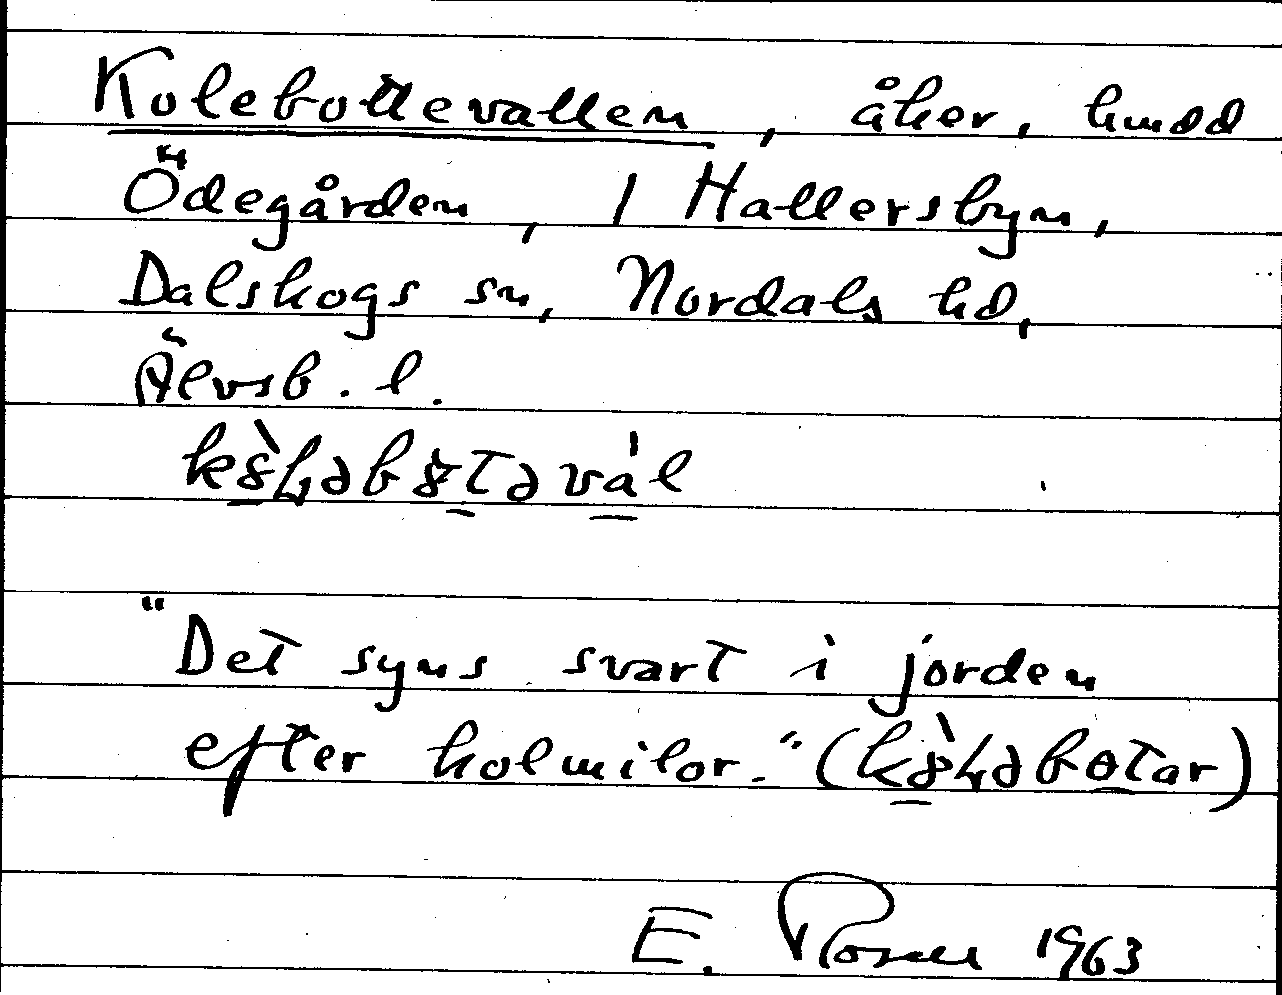 Kolebottevallen, åker, hmdd
Ödegården, 1 Hallersbyn,
Dalskogs sn, Nordals hd,
Älvsb. l.
"Det syns svart i jorden
efter kolmilor."
E. Rosell 1963